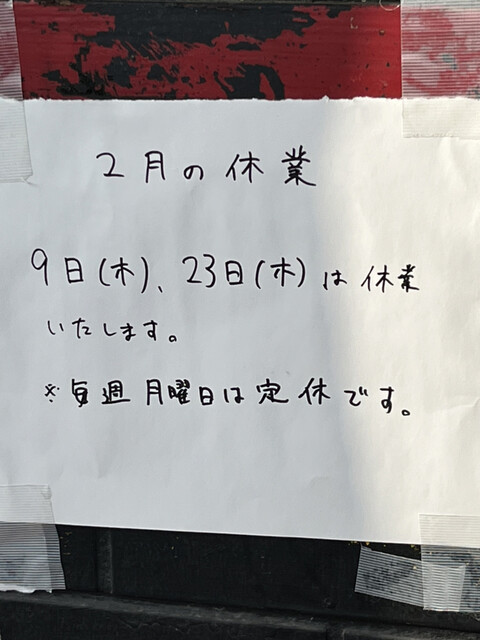 2月の休業
9日(木)、23日(木)は休業
いたします。
※毎週月曜日は定休です。